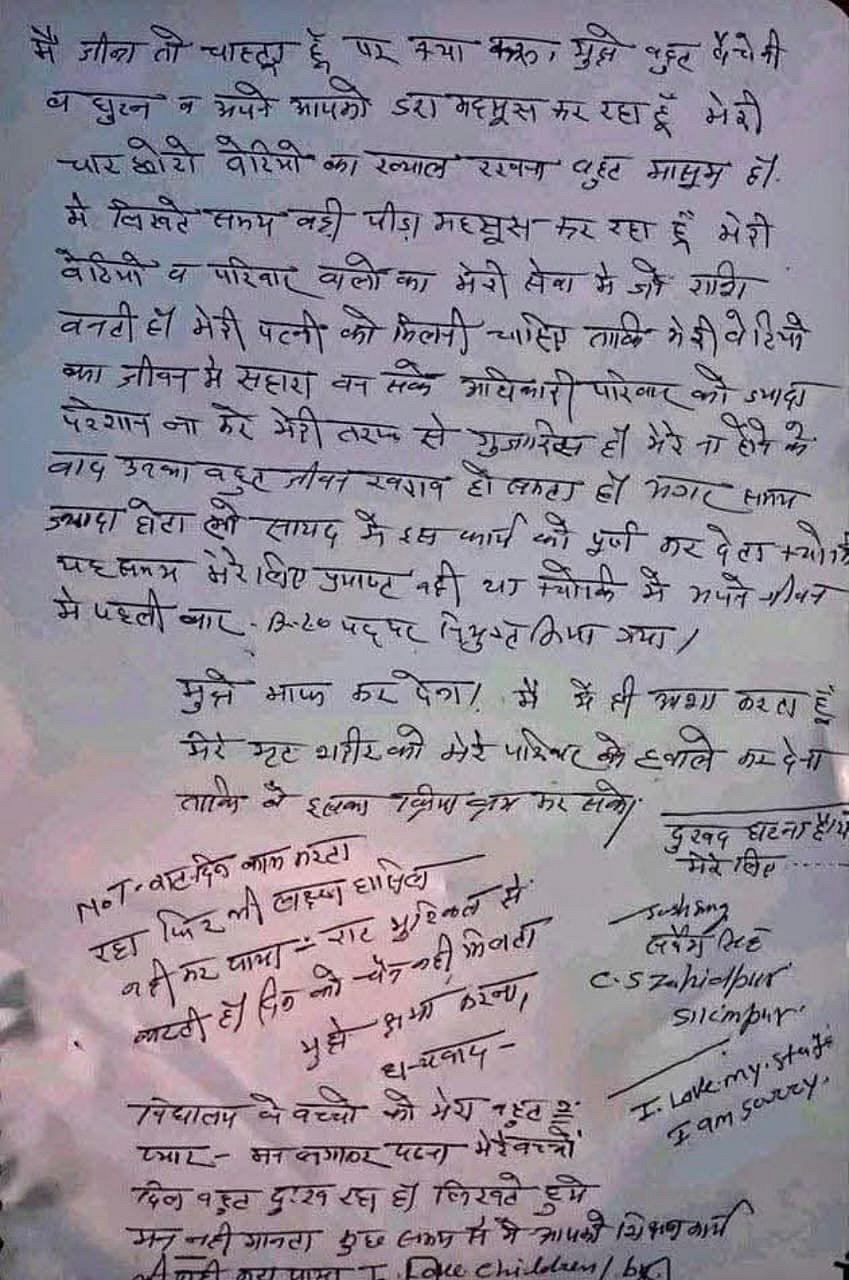 मै जीना तो चाहता हूँ पर क्या करू, मुझे बहुत बैचेनी
व घुटन व अपने आपको डरा महसूस कर रहा हूँ मेरी
चार छोटी बेटियो का ख्याल रखना बहुत मासूम है।
मै लिखते समय बड़ी पीड़ा महसूस कर रहा हूँ मेरी
बेटियो व परिवार वालो का मेरी सेवा मे जो राशि
बनती है मेरी पत्नी को मिलनी चाहिए ताकि मेरी बेटियो
का जीवन मे सहारा बन सके अधिकारी परिवार को ज्यादा
परेशान ना करे मेरी तरफ से गुजारिस है मेरे ना होने के
बाद उनका बहुत जीवन खराब हो सकता है अगर समय
ज्यादा होता तो सायद मै इस कार्य को पूर्ण कर देता क्योकि
यह समय मेरे लिए प्रयाप्त नही था क्योकि मै अपने जीवन
मे पहली बार पद पर नियुक्त किया गया।
मुझे माफ कर देना। मै ये ही आशा करता हूँ
मेरे मृत शरीर को मेरे परिवार के हवाले कर देना
ताकि वे इसका क्रिया क्रम कर सके।
दुखद घटना है ये
मेरे लिए .....
NOT- रात-दिन काम करता
रहा फिर भी लक्ष्य हासिल
नही कर पाया रात मुश्किल से
कटती है दिन को चैन नही मिलता
मुझे क्षमा करना,
धन्यवाद -
सिंह
C.S Zahidpur
I. Love. my. 
I am sorry.
विद्यालय के बच्चो को मेरा बहुत २
प्यार - मन लगाकर पढना मेरे बच्चो
दिल बहुत दुःख रहा है लिखते हुये
मन नही मानता कुछ समय से मै आपको शिक्षण कार्य
भी नही करा पाया I Love children